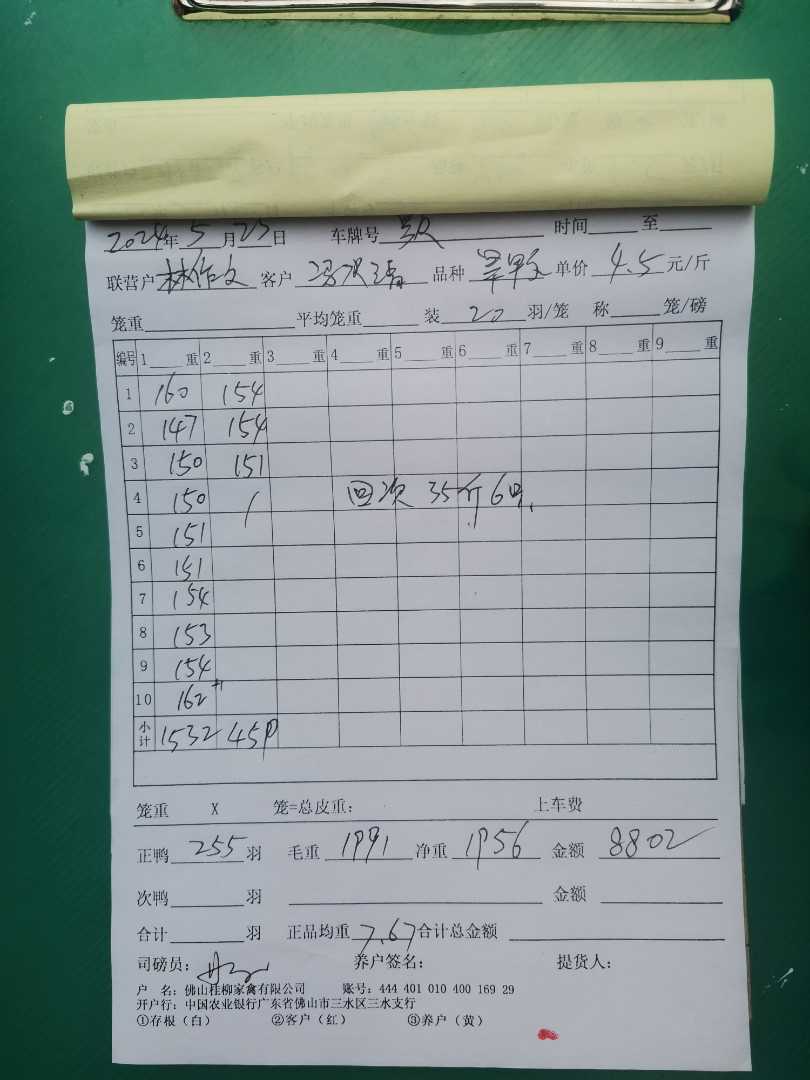 2024年5月25日 车牌号 时间 至
联营户 林作文 客户 冯次清 品种 单价 4.5 元/斤
笼重 平均笼重 装 20 羽/笼 称 笼/磅
编号 1 重 2 重 3 重 4 重 5 重 6 重 7 重 8 重 9 重
1 160 154
2 147 154
3 150 151
4 150 / 回次 35斤6只
5 151
6 151
7 154
8 153
9 154
10 162 +1
小计 1532 459
笼重 X 笼=总皮重: 上车费
正鸭 255 羽 毛重 1991 净重 1956 金额 8802
次鸭 羽 金额
合计 羽 正品均重 7.67 合计总金额
司磅员: 养户签名: 提货人:
户 名: 佛山桂柳家禽有限公司 账号: 444 401 010 400 169 29
开户行: 中国农业银行广东省佛山市三水区三水支行
①存根(白) ②客户(红) ③养户(黄)